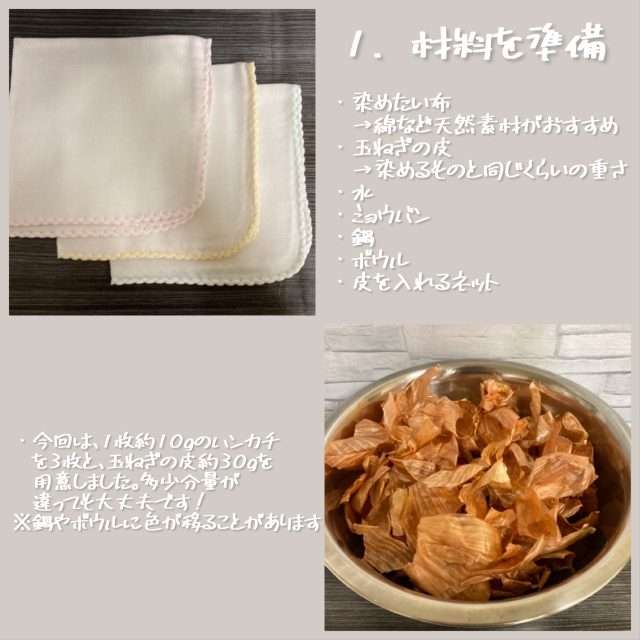 1. 材料を準備
・染めたい布
→綿など天然素材がおすすめ
・玉ねぎの皮
→染めるそのと同じくらいの重さ
・水
・ミョウバン
・鍋
・ボウル
・皮を入れるネット
・今回は、1枚約10gのハンカチ
を3枚と、玉ねぎの皮約30gを
用意しました。多少分量が
違っても大丈夫です!
※鍋やボウルに色が移ることがあります